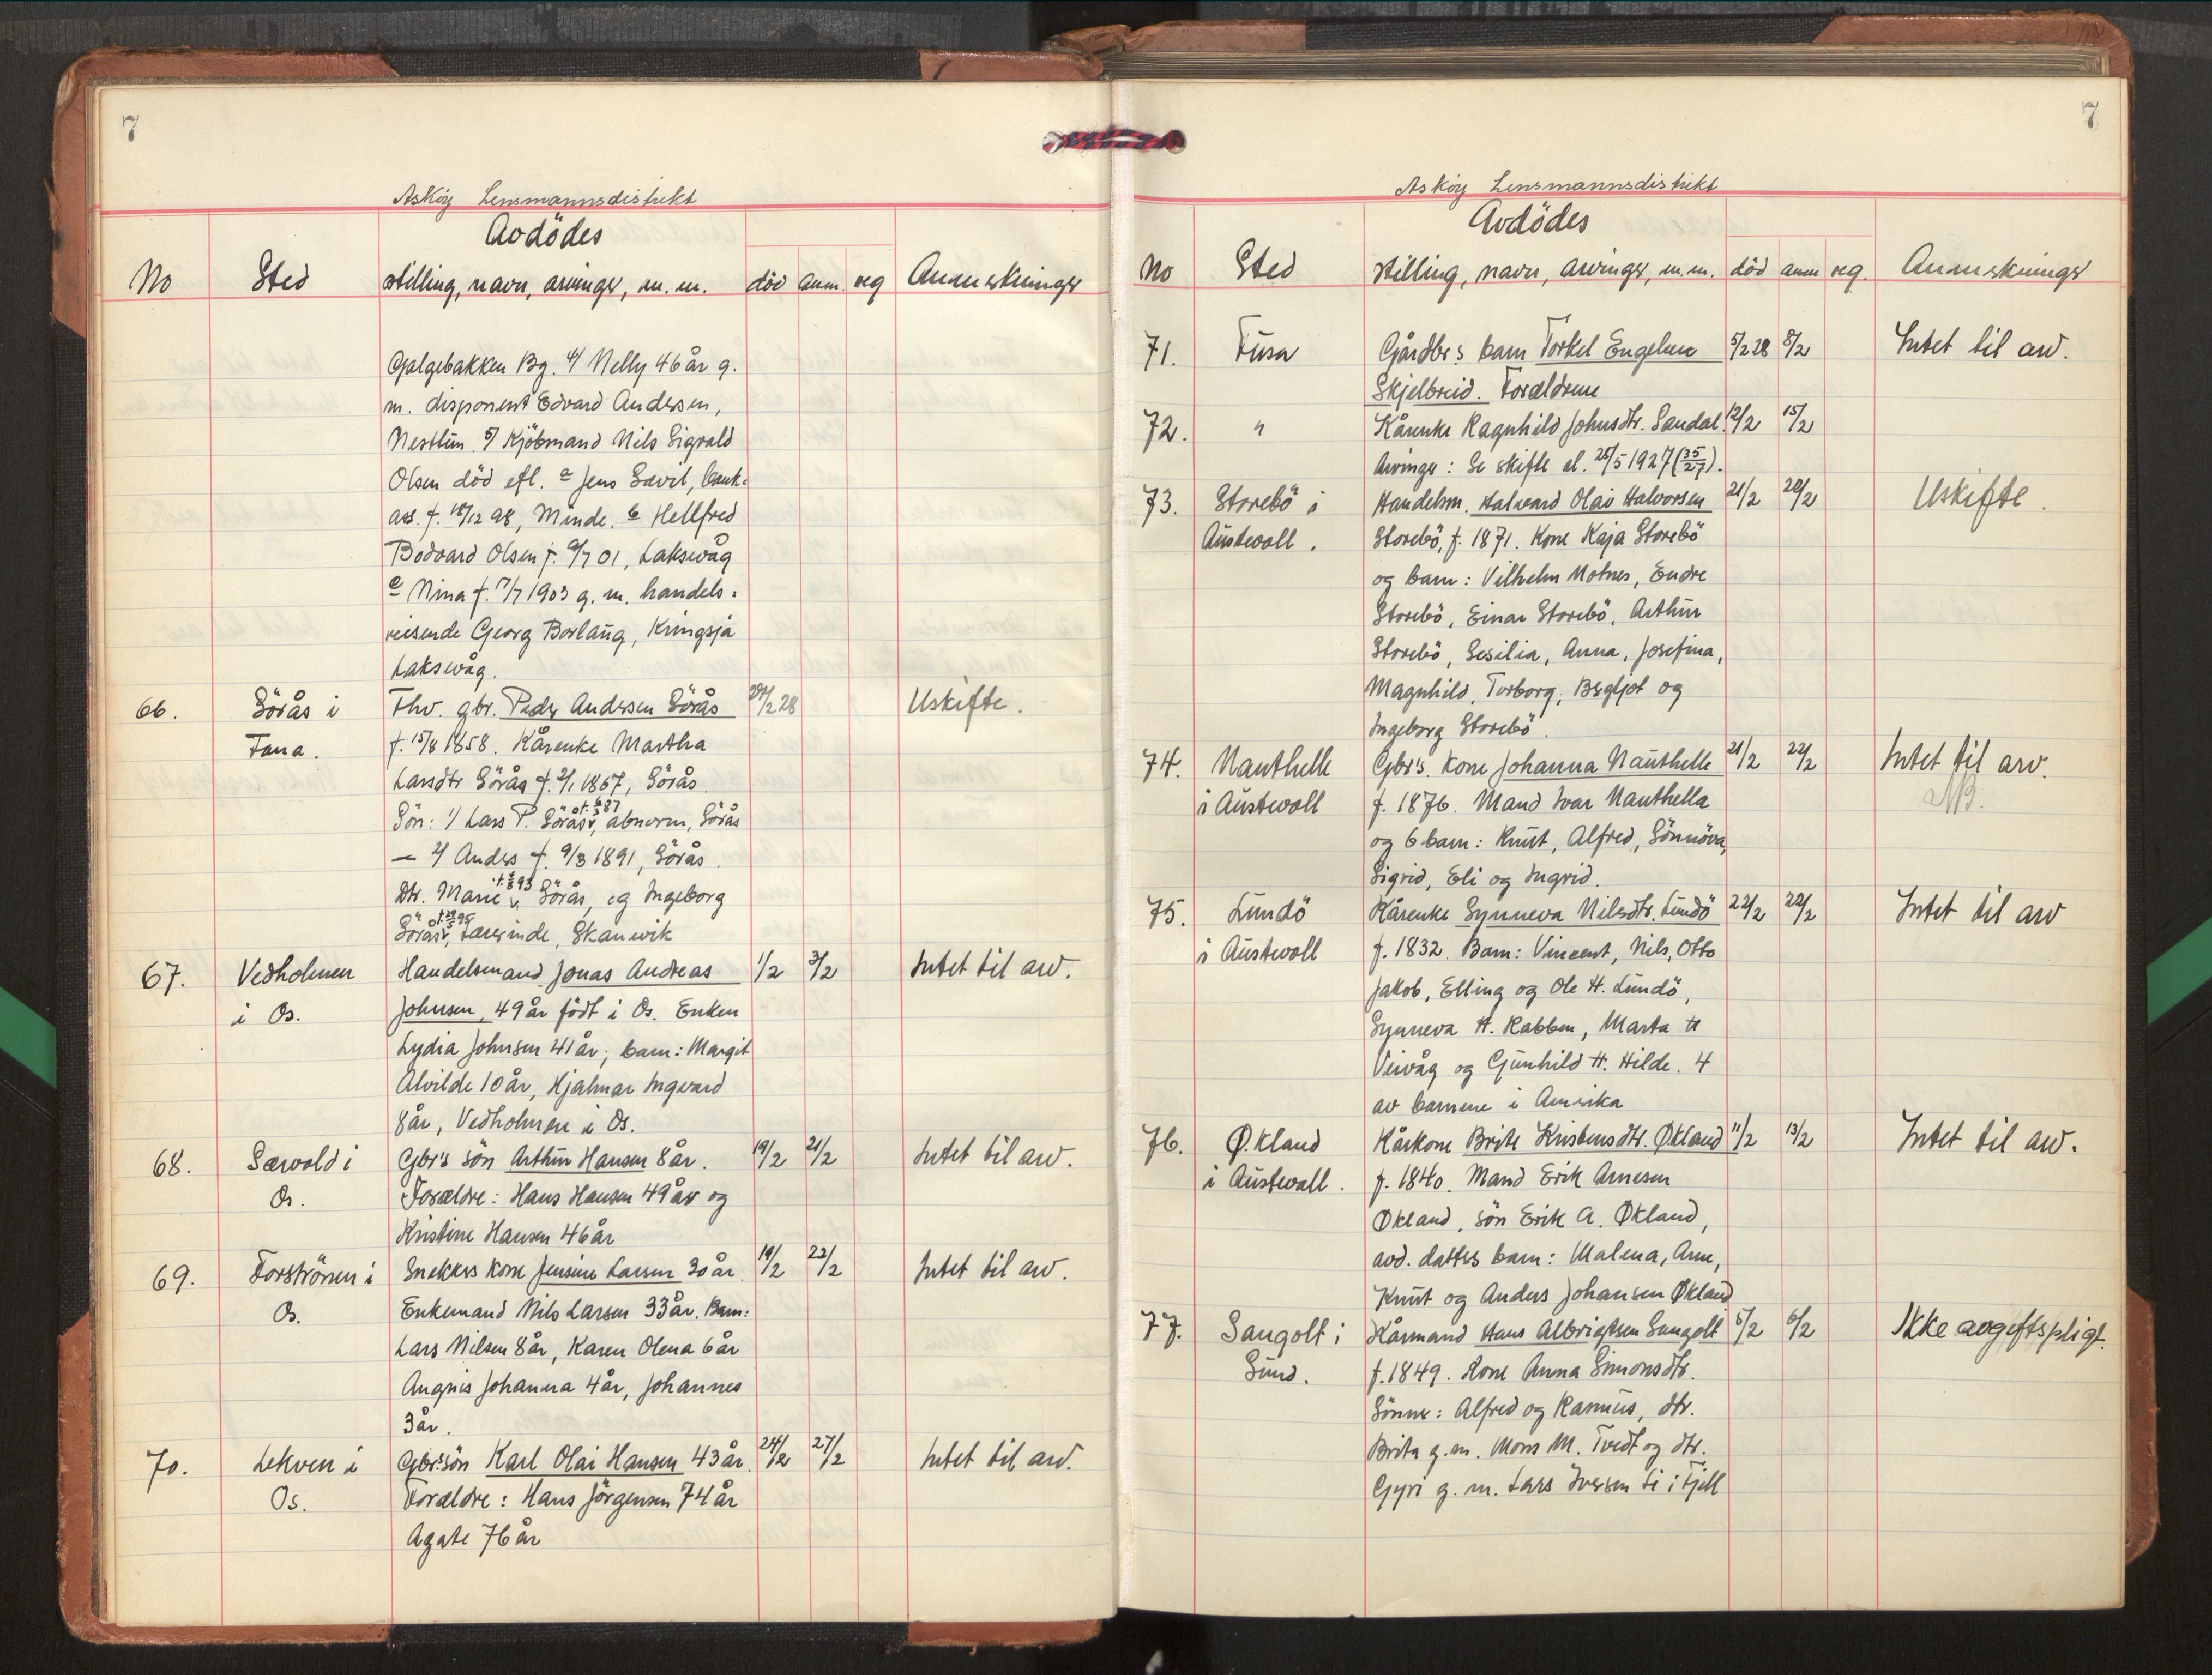 7
Askøy Lensmannsdistrikt
Avdödes
No Sted stilling, navn, arvinger, m. m. död anm. reg Anmerkninger
Galgebakken Bg. 4/ Nelly 46 år g.
m. disponent Edvard Andersen,
Nesttun. 5/ Kjöbmand Nils Sigvald
Olsen död efl. a Jens Savit, bank-
ass. f. 18/12 98, Minde. b Hellfred
Bodvard Olsen f. 9/7 01, Laksevåg
c Nina f. 17/7 1903 g. m. handels-
reisende Georg Borlaug, Kringsjå
Laksevåg.
66. Sörås i Fhv. gbr. Peder Andersen Sörås 29/2 28 Uskifte.
Fana. f. 15/8 1858. Kårenke Martha
Larsdtr Sörås f. 2/1 1867, Sörås.
Sön: 1/ Lars P. Sörås, abnorm, Sörås
— 2/ Anders f. 9/3 1891, Sörås.
Dtr. Marie Sörås, og Ingeborg
Sörås, Lærerinde, Skånevik
67. Vedholmen Handelsmand Jonas Andreas 1/2 3/2 Intet til arv.
i Os. Johnsen, 49 år födt i Os. Enken
Lydia Johnsen 41 år; barn: Margit
Alvilde 10 år, Hjalmar Ingvard
8 år, Vedholmen i Os.
68. Særvold i Gbr's sön Arthur Hansen 8 år. 19/2 21/2 Intet til arv.
Os. Forældre: Hans Hansen 49 år og
Kristine Hansen 46 år
69. Forströnen i Snekkers kone Jensine Larsen 30 år. 19/2 22/2 Intet til arv.
Os. Enkemand Nils Larsen 33 år. Barn:
Lars Nilsen 8 år, Karen Olena 6 år
Angnis Johanna 4 år, Johannes
3 år.
70. Lekven i Gbr's sön Karl Olai Hansen 43 år. 24/2 27/2 Intet til arv.
Os. Forældre: Hans Jörgensen 74 år
Agate 76 år
7
Askøy Lensmannsdistrikt
Avdödes
No Sted stilling, navn, arvinger, m. m. död anm reg. Anmerkninger
71. Fusa Gårdbr's barn Torkel Engelsen 5/2 28 8/2 Intet til arv.
Skjelbreid. Forældrene
72. " Kårenke Ragnhild Johnsdtr. Sandal. 12/2 15/2
Arvinger: Se skifte al. 25/5 1927 (35/27).
73. Storebö i Handelsm. Halvard Olai Halvorsen 21/2 20/2 Uskifte.
Austevoll. Storebö, f. 1871. Kone Kaja Storebö
og barn: Vilhelm Motnes, Endre
Storebö, Einar Storebö, Arthur
Storebö, Sesilia, Anna, Josefina,
Magnhild, Torborg, Bergljot og
Ingeborg Storebö.
74. Nauthelle Gbr's. kone Johanna Nauthelle 21/2 22/2 Intet til arv.
i Austevoll f. 1876. Mand Ivar Nauthella NB.
og 6 barn: Knut, Alfred, Sönnöva,
Sigrid, Eli og Ingrid.
75. Lundö Kårenke Synneva Nilsdtr. Lundö 22/2 22/2 Intet til arv
i Austevoll f. 1832. Barn: Vincent, Nils, Otto
Jakob, Elling og Ole H. Lundö,
Synneva H. Rabben, Marta H
Veivåg og Gunhild H. Hilde. 4
av barnene i Amerika
76. Økland Kårkone Brite Kristensdtr. Økland 11/2 13/2 Intet til arv.
i Austevoll. f. 1840. Mand Erik Arnesen
Økland, sön Erik A. Økland,
avd. datters barn: Malena, Arne,
Knut og Anders Johansen Økland
77. Sangolt i Kårmand Hans Albrigtsen Sangolt 5/2 6/2 Ikke avgiftspligt.
Sund. f. 1849. Kone Anna Simonsdtr.
Sönner: Alfred og Rasmus, dtr.
Brita g. m. Mons M. Tvedt og dtr.
Gyri g. m. Lars Iversen Li i Fjell